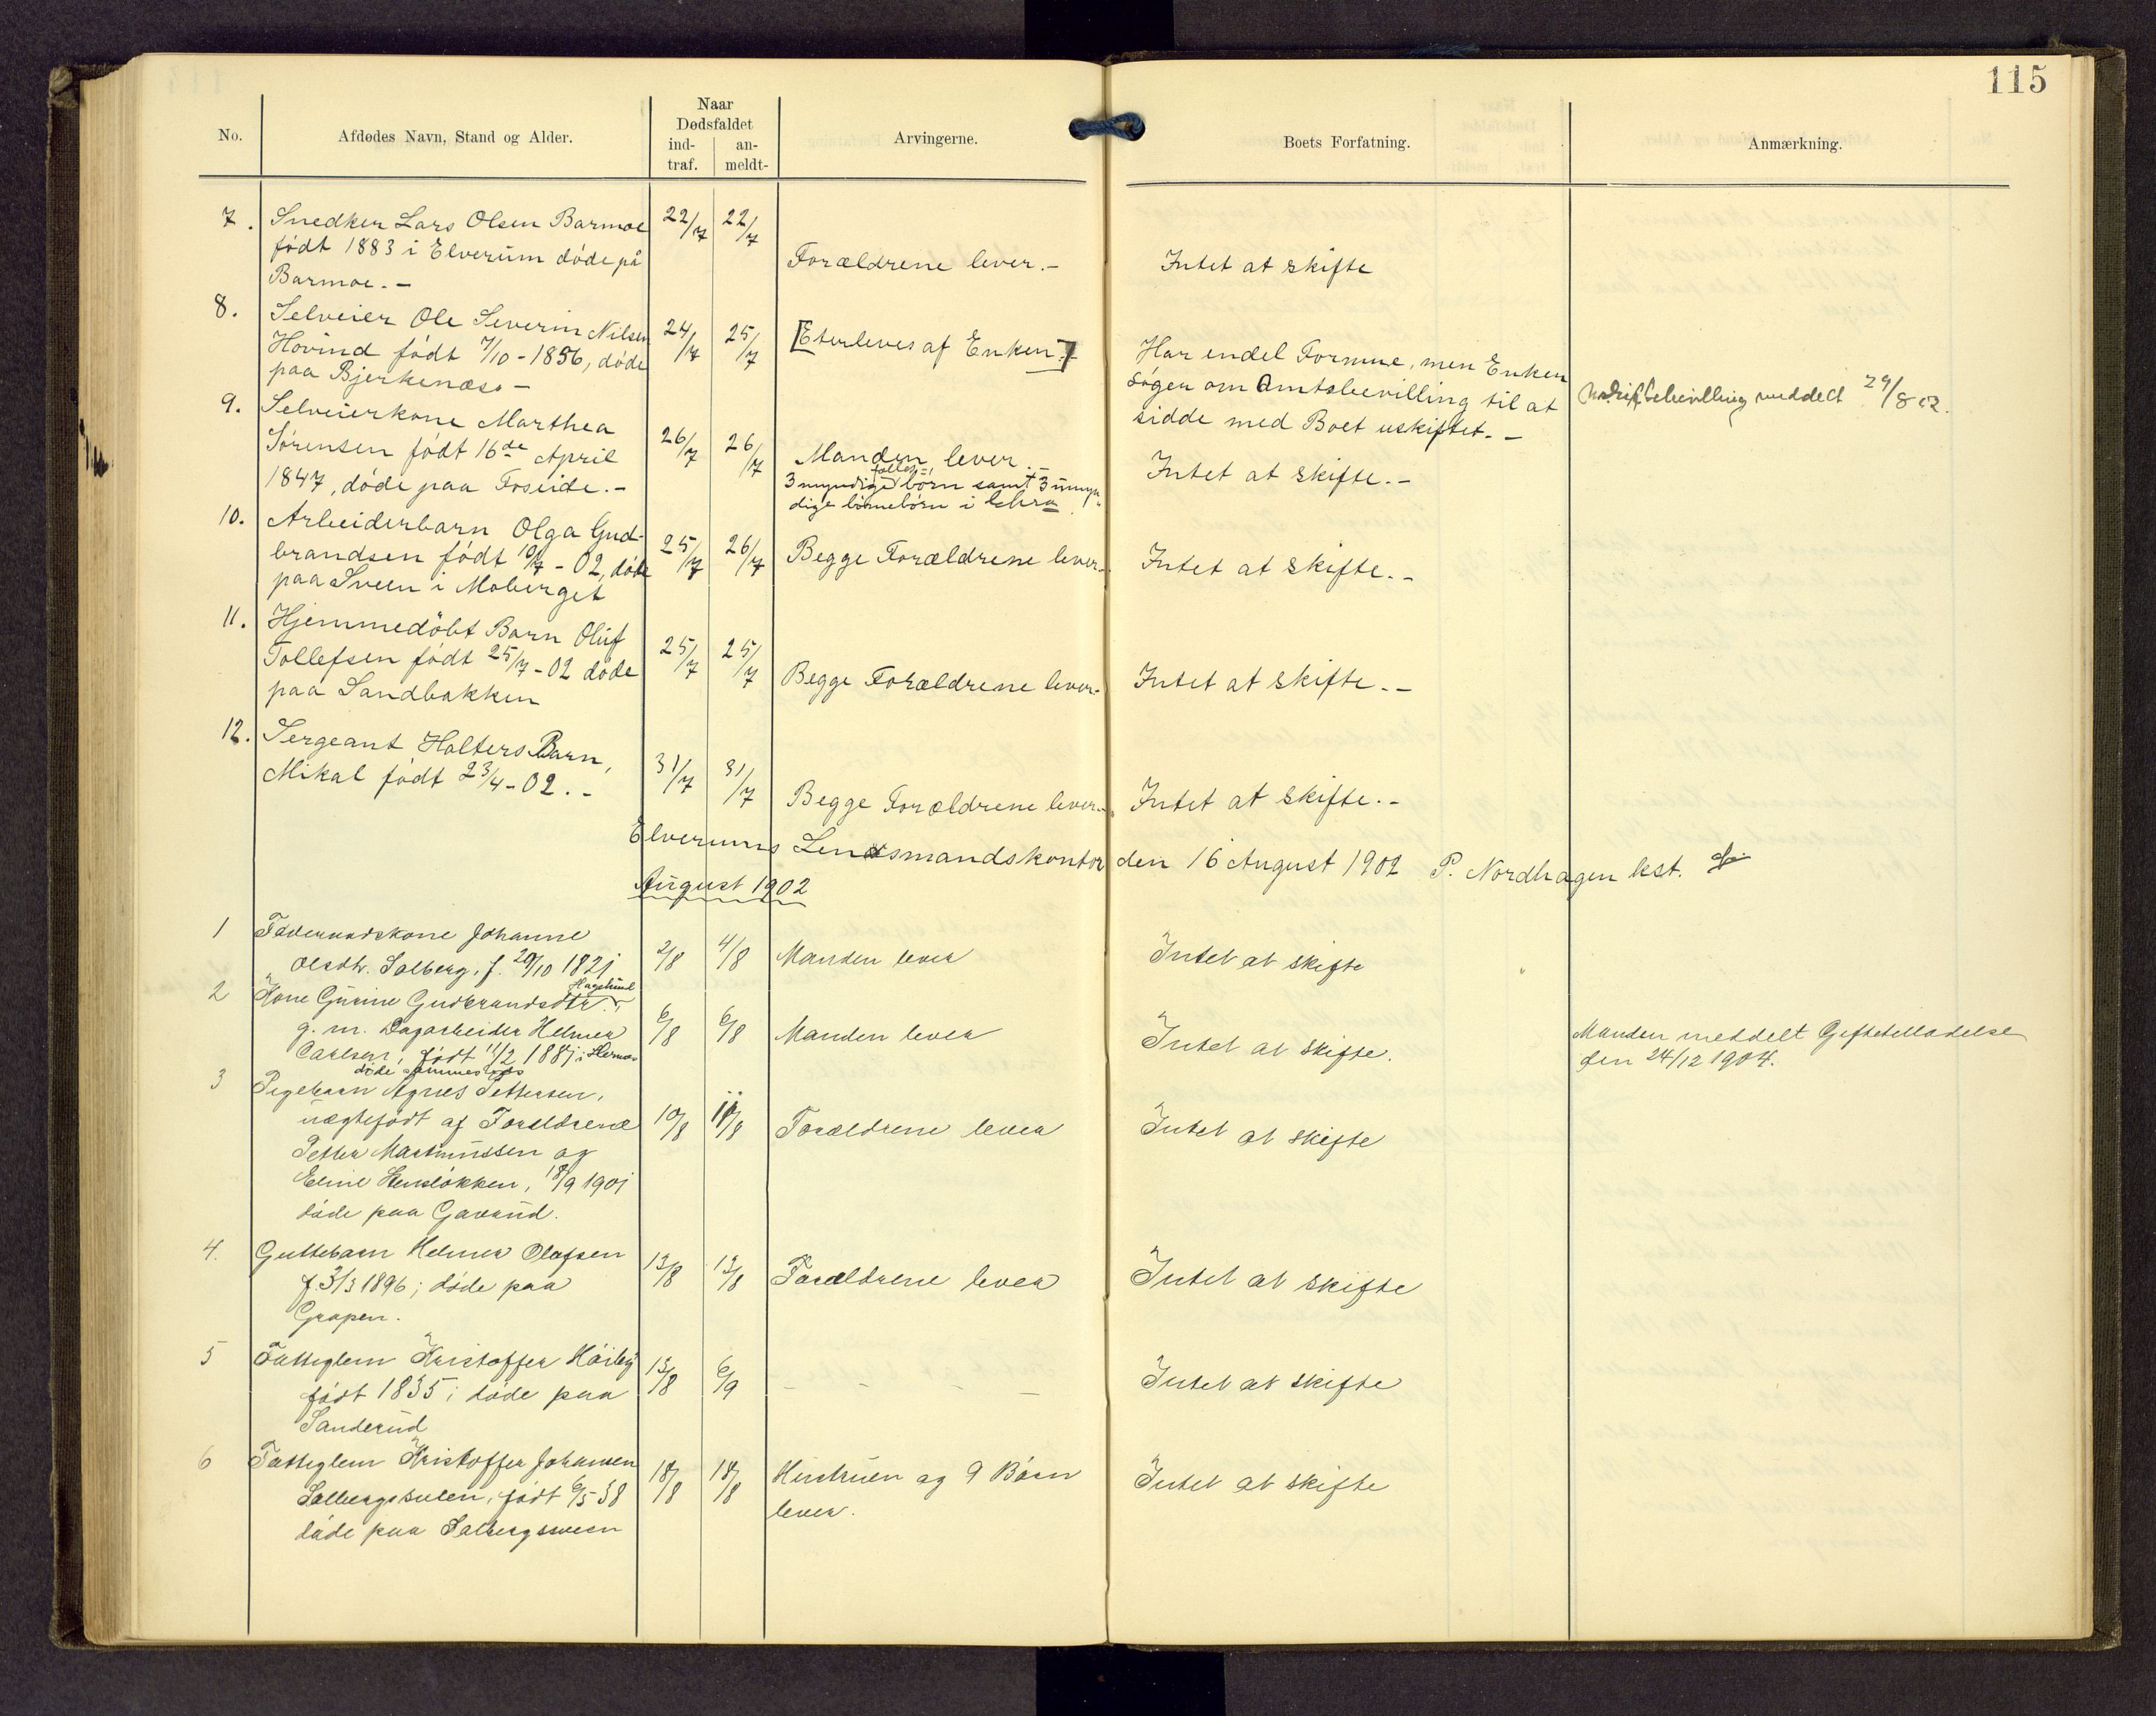 115
No.
Afdødes Navn, Stand og Alder.
Naar
Dødsfaldet
ind-
traf.
an-
meldt-
Arvingerne.
Boets Forfatning.
Anmærkning.
7. Snedker Lars Olsen Barmoe 22/7 22/7
født 1883 i Elverum døde på
Barmoe.-
Forældrene lever.- Intet at skifte
8. Selveier Ole Severin Nilsen 24/7 25/7
Hovind født 7/10-1856, døde
paa Bjerkenæs.-
[Eterleves af Enken.-]
Har endel Formue, men Enken
søger om Amtsbevilling til at
sidde med Boet uskiftet.-
bevilling meddelt 29/8 02.
9. Selveierkone Marthea 26/7 26/7
Sørensen født 16de April
1847, døde paa Foseide.-
Manden lever.-
3 myndige fælles børn samt 3 umyn-
dige børnebørn i
Intet at skifte.-
10. Arbeiderbarn Olga Gud- 25/7 26/7
brandsen født 10/7-02, døde
paa Sveen i Moberget
Begge Forældrene lever- Intet at skifte.-
11. Hjemmedøbt Barn Oluf 25/7 25/7
Tollefsen født 25/7-02 døde
paa Sandbakken
Begge Forældrene lever- Intet at skifte.-
12. Sergeant Holters Barn, 31/7 31/7
Mikal født 23/4-02.-
Begge Forældrene lever.- Intet at skifte.-
Elverums Lensmandskontor den 16 August 1902 P. Nordhagen kst.
August 1902
1 Johanne 2/8 4/8 Manden lever Intet at skifte
Olsdtr. Solberg, f. 20/10 1821
2 Kone Gurine Gudbrandsdtr. Hagelund 6/8 6/8 Manden lever Intet at skifte.
g. m. Dagarbeider Helmer
Carlsen, født 11/2 1881 i
døde sammesteds
Manden meddelt Giftetilladelse
den 24/12 1904.
3 Pigebarn Agnes Pettersen, 10/8 11/8 Forældrene lever Intet at skifte
uægtefødt af Forældrene
Petter Martinussen og
Eline 18/9 1901
døde paa Gaarud.
4. Guttebarn Helmer Olafsen 12/8 12/8 Forældrene lever Intet at skifte
f. 3/3 1896; døde paa
Grapen.
5 Fattiglem Kristoffer Høiby 13/8 6/9 - - - - Intet at skifte
født 1835; døde paa
Sanderud
6 Fattiglem Kristoffer Johansen 18/8 18/8 Hustruen og 9 Børn Intet at skifte
født 6/5 38 lever.
døde paa Solbergsveen